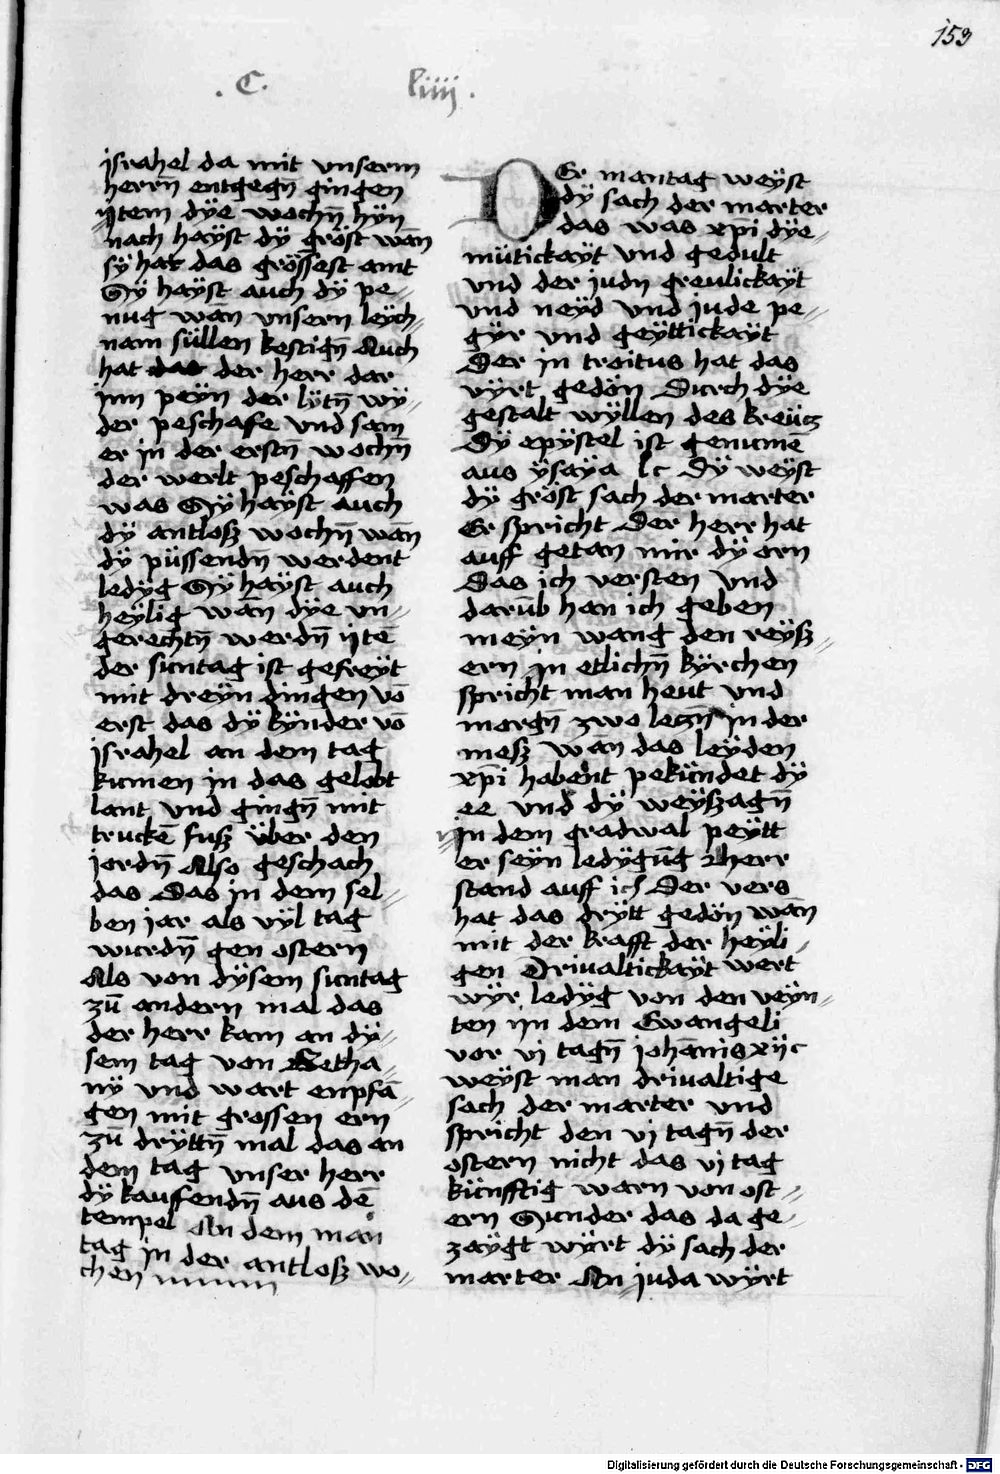 153
. C. liiij .
israhel da mit vnserm
herrn̄ entgegn̄ gingen
Item dÿe wochn̄ hÿn
nach haÿst dÿ gröst wan̄
sÿ hat das grössest amt
Sÿ haÿst auch dÿ pe-
nug wan̄ vnsern leÿch-
nam süllen kestign̄ Auch
hat das der herr dar
inn peÿn der lÿtn̄ wÿ-
der peschafe vnd sam
er in der erstn̄ wochn̄
der werlt peschaffen
was Sÿ haÿst auch
dÿ antlosz wochn̄ wan̄
dÿ püssendn̄ werdent
ledÿg Sÿ haÿst auch
heÿlig wan̄ dÿe vn-
gerechtn̄ werdn̄ ijtē
der suntag ist gefreÿt
mit dreÿn dingen vō
erst das dÿ kÿnder vō
israhel an dem tag
kumen in das gelobt
lant vnd gingn̄ mit
truckē fusz über den
jordn̄ Also geschach
das Das in dem sel-
ben jar als vÿl tag
wurdn̄ gen ostern
Als von dÿsem suntag
zū andern mal das
der herr kam an dÿ-
sem tag von Betha-
nÿ vnd wart enpfā-
gen mit grossen ern
zū drÿttn̄ mal das an
dem tag vnser herr
dÿ kauffendn̄ aus dē
tempel An dem man
tag in der antlosz wo-
chen
DEr mantag weÿst
dÿ sach der marter
das was xp̄i dÿe-
mütickaÿt vnd gedult
vnd der judn greulickaÿt
vnd neÿd vnd jude pe-
gÿr vnd geÿttickaÿt
Der in troitus hat das
vÿrt gedön Durch dÿe
gestalt wÿllen des kreücz
Dÿ epÿstel ist genumē
aus ÿsaÿa lc Dÿ weÿst
dÿ gröst sach der marter
Er spricht Der herr hat
auff getan mir dÿ orn
Das ich versten vnd
darūb han ich geben
meÿn wang den reÿsz-
ern in etlichn̄ kÿrchen
spricht man heut vnd
morgn̄ zwo leczn̄ in der
mesz wan̄ das leÿden
xp̄i habent pekündet dÿ
ee vnd dÿ weÿszagn̄
in dem gradwal peÿtt
er seÿn ledÿgūg herr
stand auff Der vers
hat das drÿtt gedön wan̄
mit der krafft der heÿli-
gen Driualtickaÿt wert
wÿr ledÿg von den veÿn-
ten ijn dem Ewangeli
vor vj tagn̄ johānis xijc
weÿst man driualtige
sach der marter vnd
spricht den vj tagn̄ der
ostern nicht das vj tag
künfftig warn von ost-
ern Sunder das da ge-
zaÿgt wÿrt dÿ sach der
marter An juda wÿrt
Digitalisierung gefördert durch die Deutsche Forschungsgemeinschaft - DFG